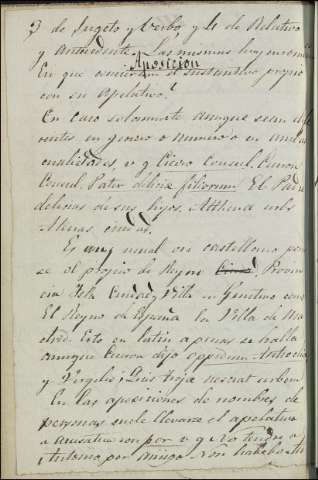 3 de Sugeto y Verbo, y 4 de Relativo
y Antecedente. Las mismas hay en
Aposicion
En que concuerdan el sustantivo propio
con su Apelativo?
En caso solamente aunque sean
en genero o numero o en
v g Cicero Consul. Ciceron
Consul. Pater deliciæ filiorum. El Padre
delicias de sus hijos. Athenæ urbs
Atenas ciudad.
Es muy usual en castellano
se el propio de Reyno Provin
cia Isla Ciudad, Villa en Genitivo como
El Reyno de España la Villa de Ma
drid. Esto en latin apenas se halla
aunque Ciceron dijo oppidum Antiochiæ
y Virgilio
En las aposiciones de nombres de
personas suele llevarse el apelativo
a Acusativo con por v g No tendre a
Antonio por amigo Non habebo